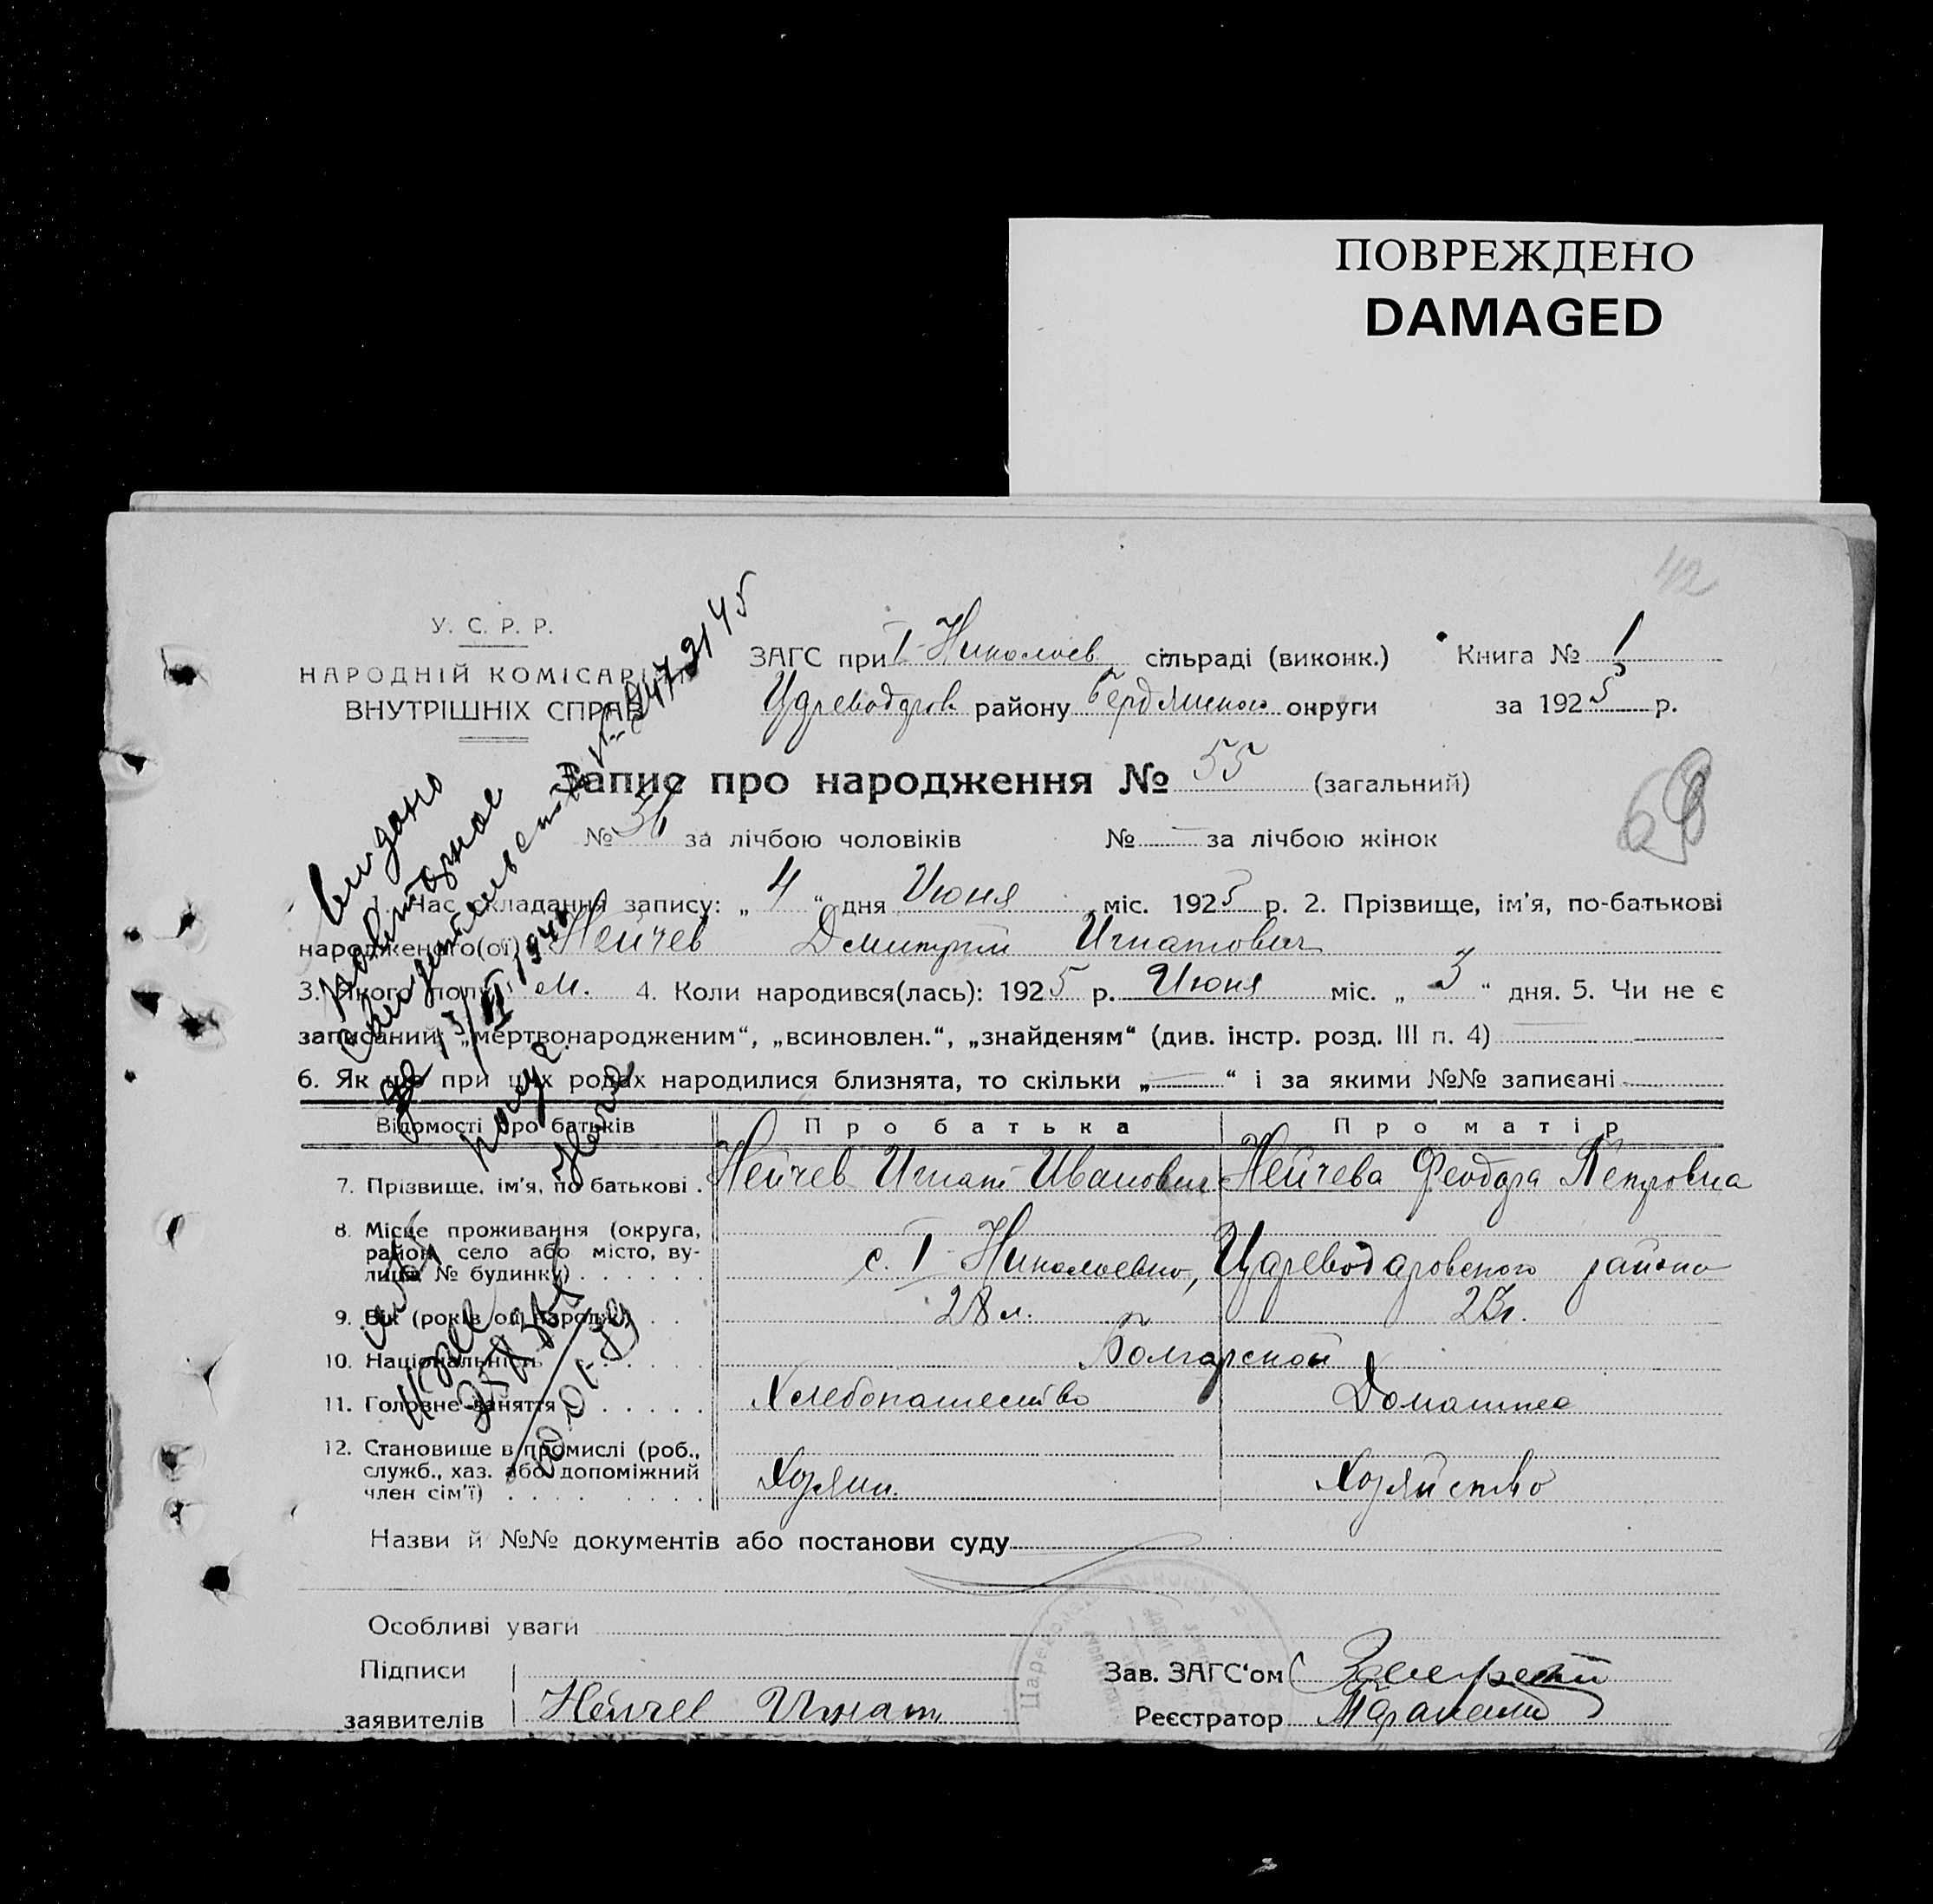 ПОВРЕЖДЕНО
DAMAGED
42
У. С. Р. Р.
НАРОДНІЙ КОМІСАРІЯТ
ВНУТРІШНІХ СПРАВ
ЗАГС при I Николаев сільраді (виконк.) Книга № 1
Цареводаров району Бердянского округи за 1925 р.
Запис про народження № 55 (загальний)
68
№ 36 за лічбою чоловіків № — за лічбою жінок
1. Час складання запису: „ 4 “ дня Июня міс. 1925 р. 2. Прізвище, ім'я, по-батькові
народженого(ої) Нейчев Дмитрий Игнатович
3. Якого полу м. 4. Коли народився(лась): 1925 р. Июня міс. „ 3 “ дня. 5. Чи не є
записаний: „мертвонародженим“, „всиновлен.“, „знайденям“ (див. інстр. розд. III п. 4)
6. Як що при цих родах народилися близнята, то скільки „ — “ і за якими №№ записані
Відомості про батьків Про батька Про матір
7. Прізвище, ім'я, по батькові . Нейчев Игнат Иванович Нейчева Феодора Петровна
8. Місце проживання (округа,
район, село або місто, ву-
лиця, № будинку) . . . . . . с. I Николаевка, Цареводаровского района
9. Вік (років од народж.) . . . 28 л. 23 г.
10. Національність . . . . . . Болгарской
11. Головне заняття . . . . . Хлебопашество Домашнее
12. Становище в промислі (роб.,
служб., хаз. або допоміжний
член сім'ї) . . . . . . . Хозяин. Хозяйство
Назви й №№ документів або постанови суду
Особливі уваги
Підписи
заявителів Нейчев Игнат
Зав. ЗАГС'ом
Реєстратор
Выдано
повторное
свидетельство